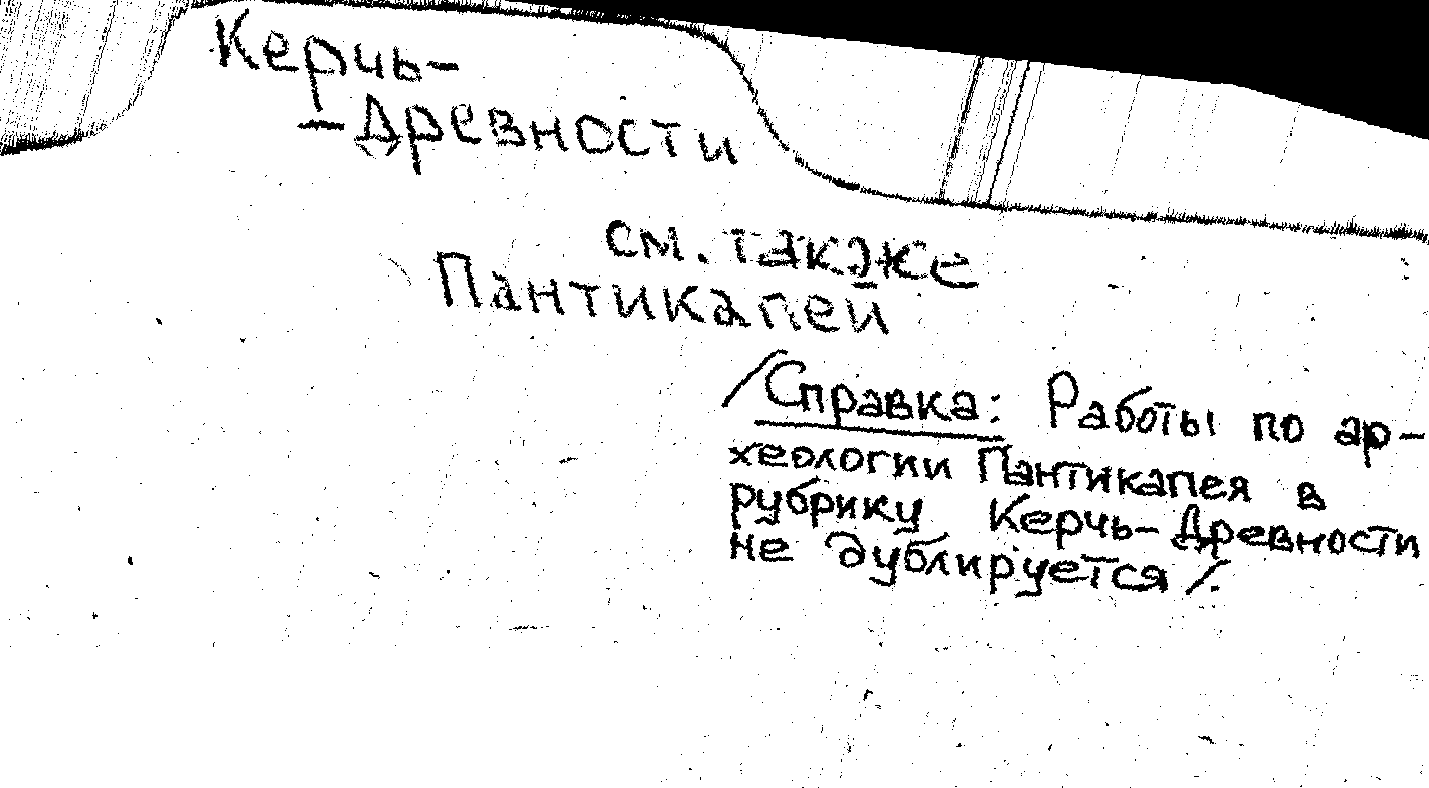 Керчь-
-Древности
см. также
Пантикапей
/Справка: Работы по ар-
хеологии Пантикапея в
рубрику Керчь-Древности
не дублируется/.